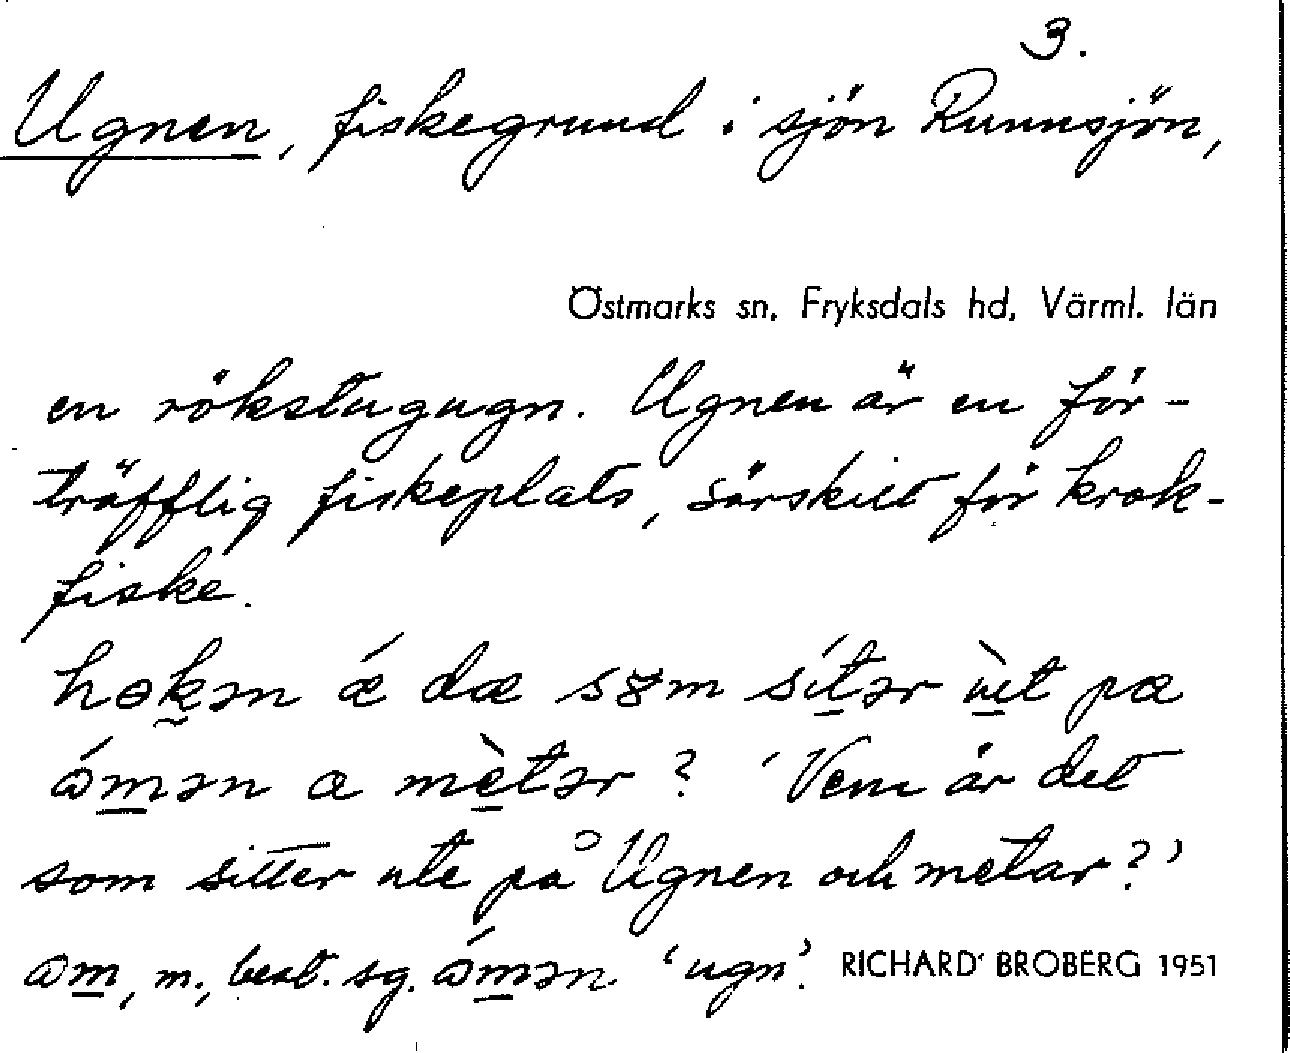 3.
Ugnen, fiskegrund i sjön Runnsjön,
Östmarks sn, Fryksdals hd, Värml. län
en rökstugugn. Ugnen är en för-
träfflig fiskeplats, särskilt för krok-
fiske.
hɵk̰ən ǽ dæ s8m sít̲ər ùt̲ pæ
óm̲ən æ mèt̲ər? 'Vem är det
som sitter ute på Ugnen och metar?'
om̲, m., best. sg. óm̲ən 'ugn'. RICHARD BROBERG 1951